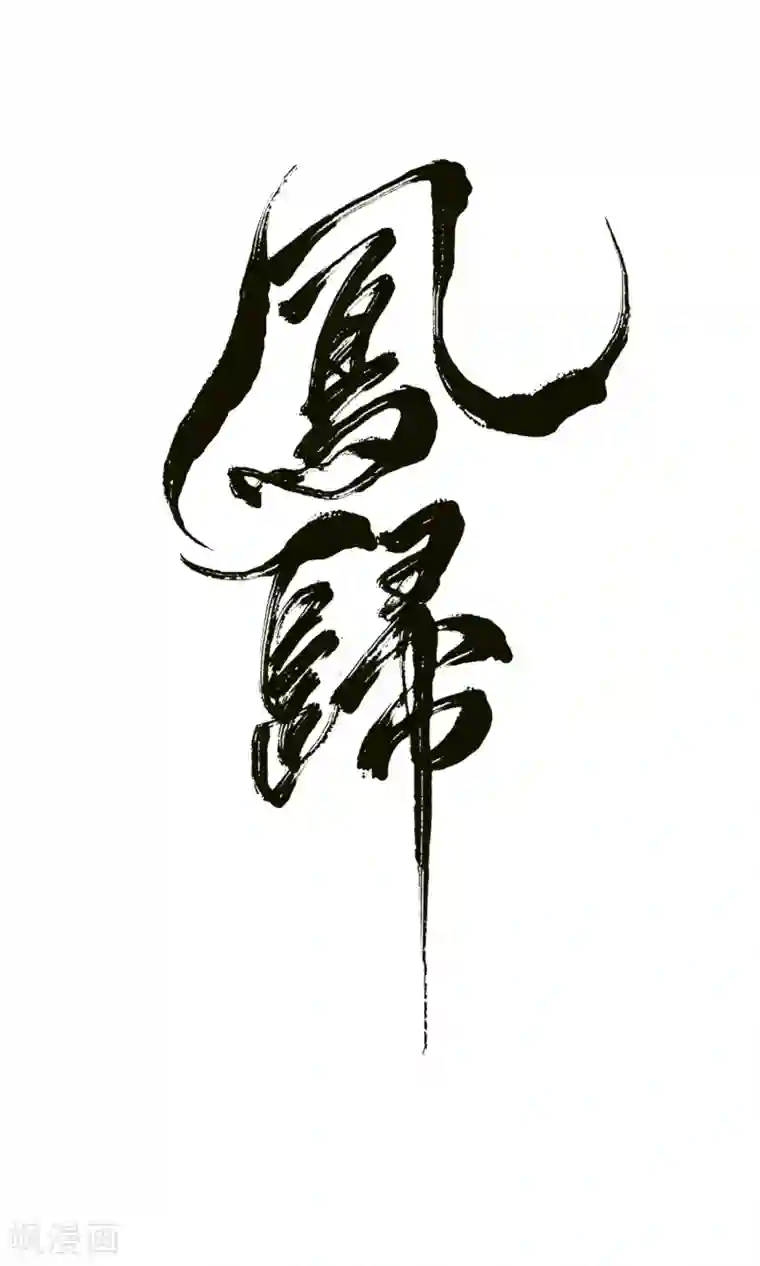 鳳歸
飒漫画